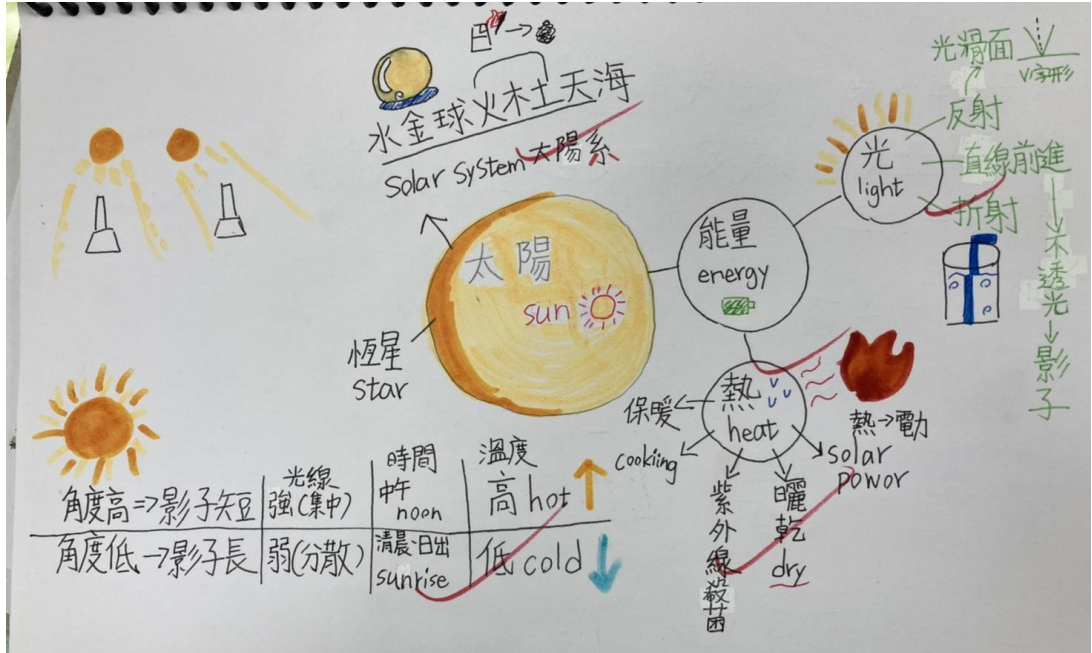 水金球火木土天海
solar system 太陽系
太陽
sun
恆星
star
能量
energy
光
light
反射
光滑面
V字形
直線前進
不透光
影子
折射
熱
heat
保暖
cookiing
紫外線殺菌
曬乾
dry
熱→電力
solar
powor
光線
時間
溫度
角度高⇒影子短
強(集中)
中午
noon
高 hot
角度低→影子長
弱(分散)
清晨·日出
sunrise
低 cold